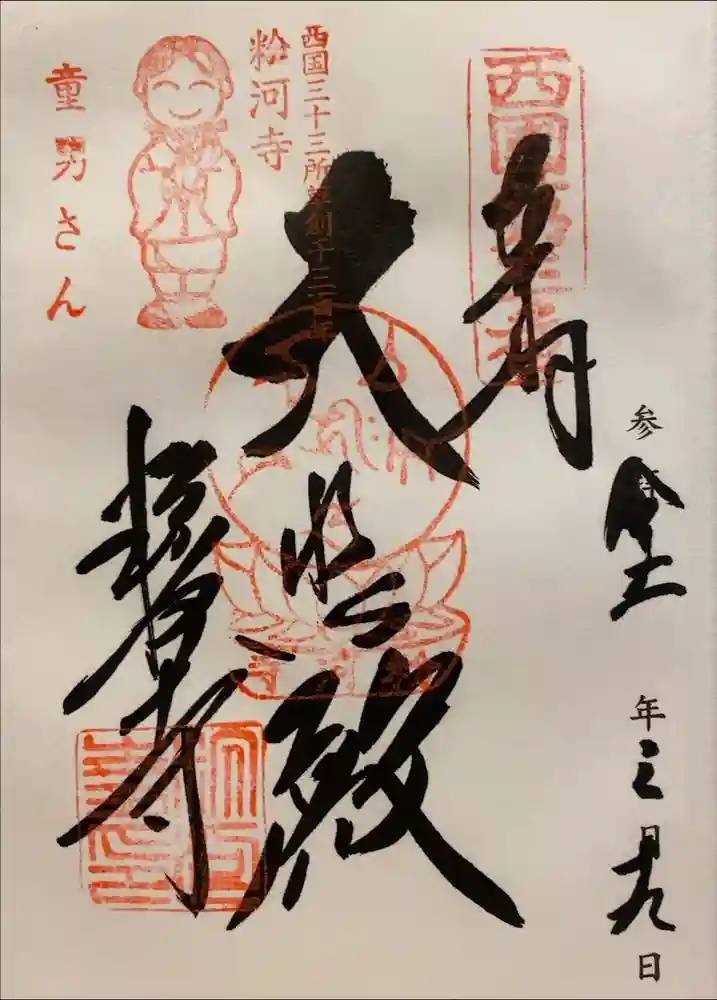 奉拝
西国第三番
参
年三月十九日
大悲殿
西国三十三所草創千三百年
粉河寺
童男さん
粉河寺